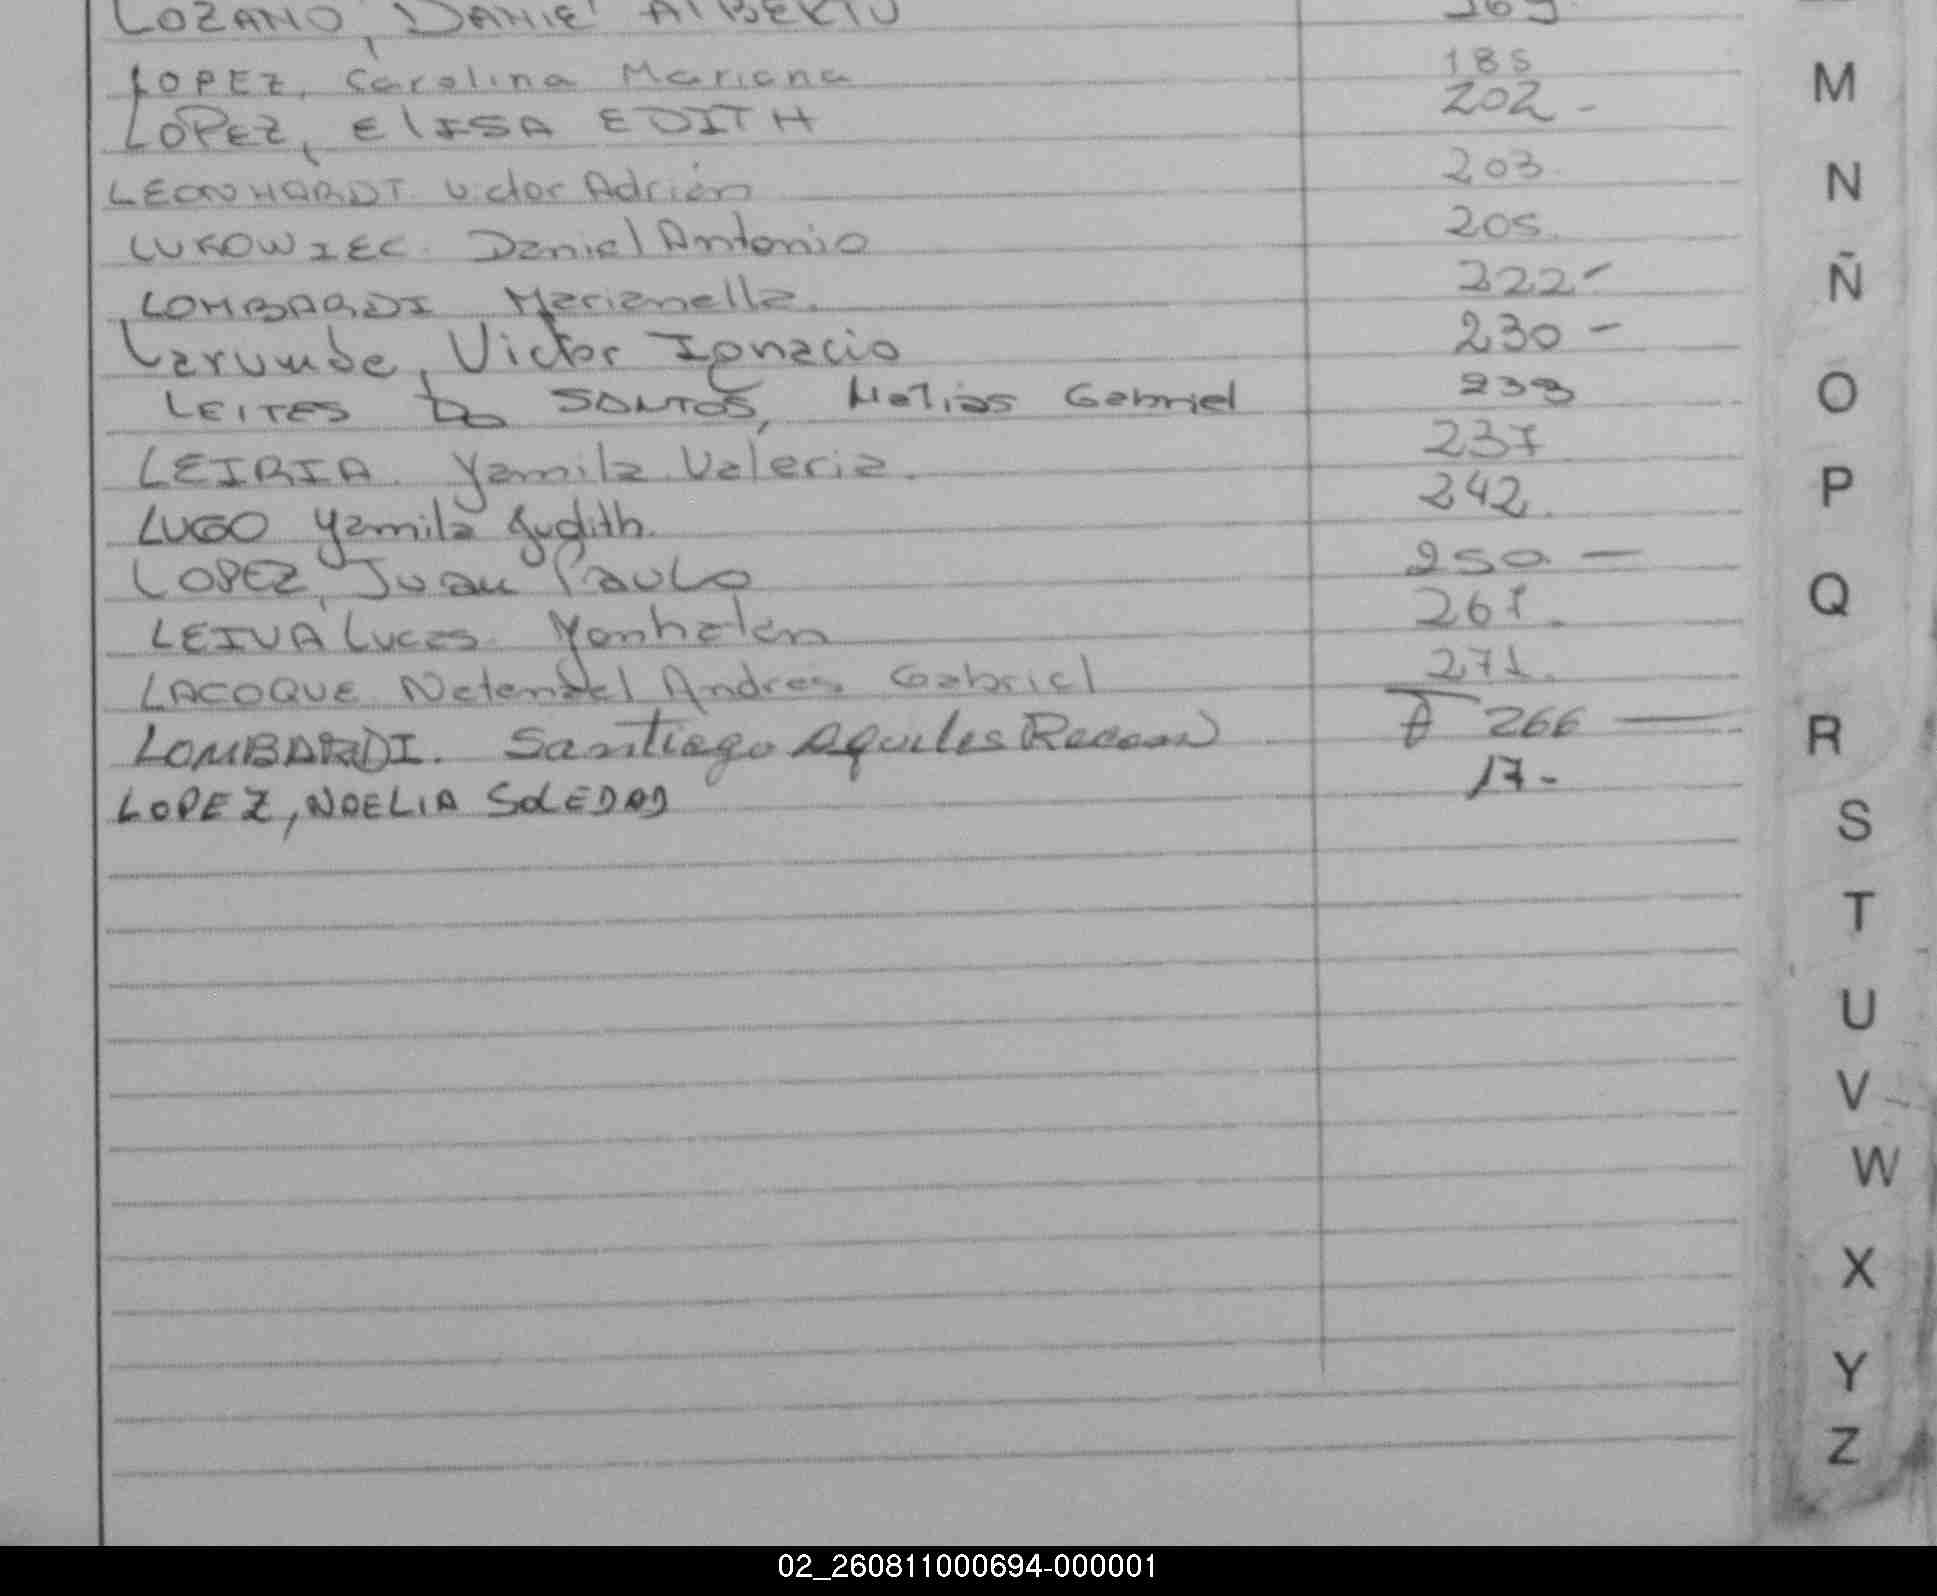 LOZANO, DANIEL ALBERTO 169
LOPEZ, Carolina Mariana 185
LOPEZ, ELISA EDITH 202 -
LEONHARDT Victor Adrián 203.
LUKOWIEC. Daniel Antonio 205.
LOMBARDI Marianella. 222 -
Larumbe, Victor Ignacio 230 -
LEITES Do SANTOS, Matias Gabriel 233
LEIRIA. Yamila Valeria. 237
LUGO Yamila Judith. 242.
LOPEZ, Juan Paulo 250. -
LEIVA Lucas 267.
LACOQUE Natanael Andres Gabriel 271.
LOMBARDI. Santiago Aquiles 266 -
LOPEZ, NOELIA SOLEDAD 17 -
M
N
Ñ
O
P
Q
R
S
T
U
V
W
X
Y
Z
02_260811000694-000001